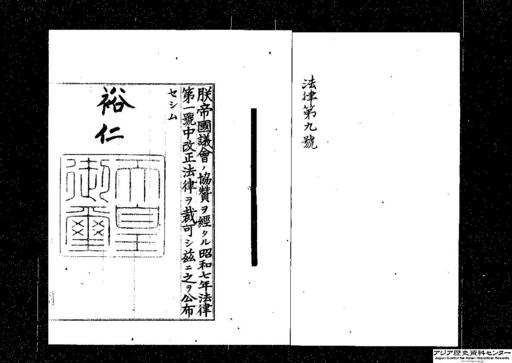 法律第九號
朕帝國議會ノ協贊ヲ經タル昭和七年法律
第一號中改正法律ヲ裁可シ茲ニ之ヲ公布
セシム
裕仁
天皇
御璽
アジア歴史資料センター
Japan Center for Asian Historical Records